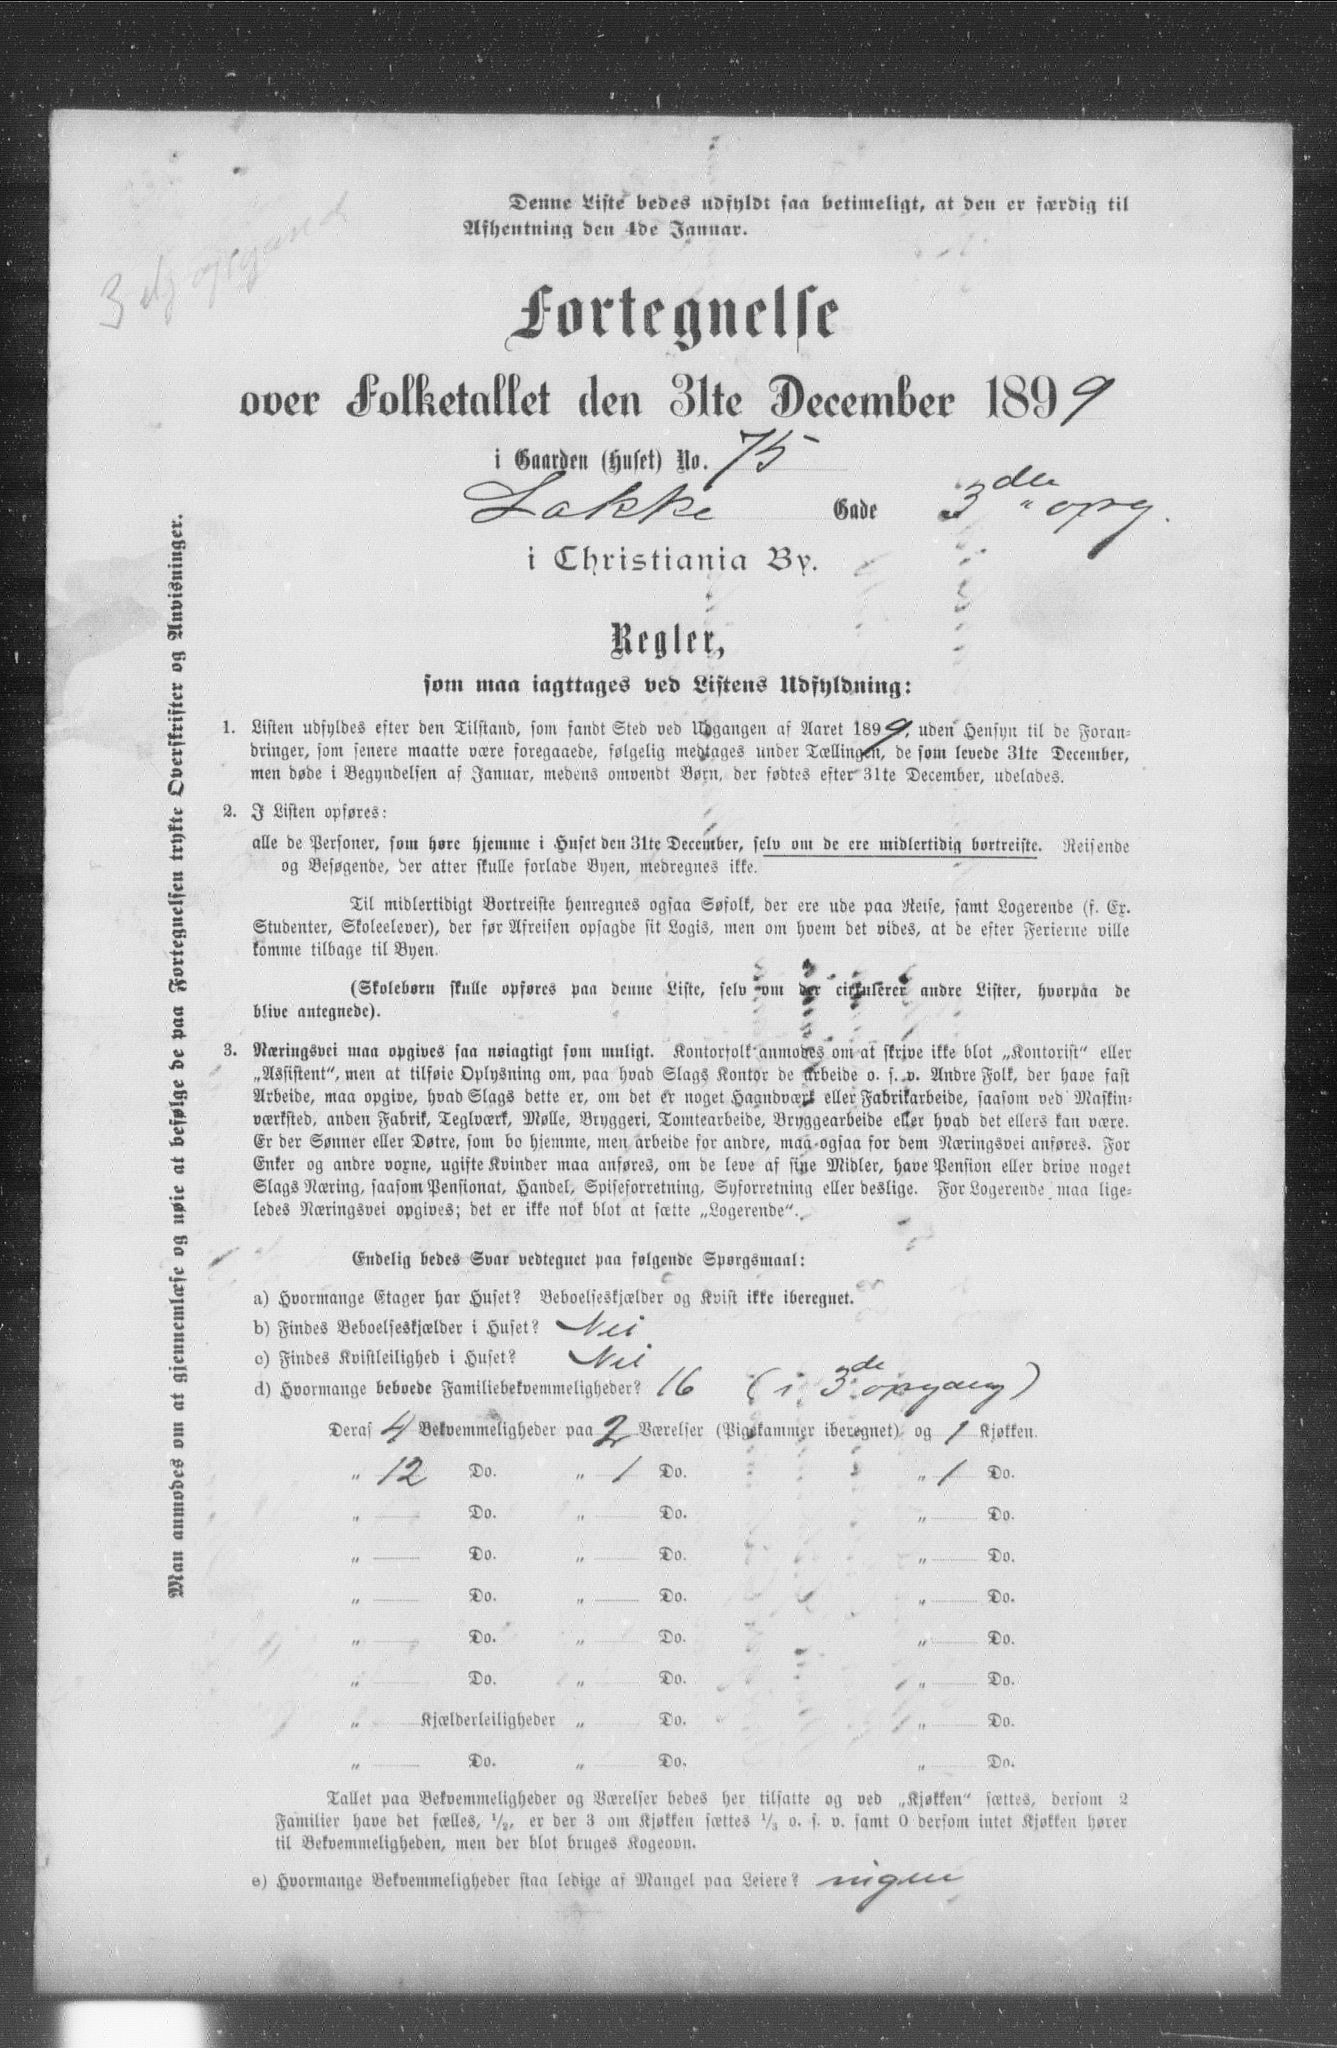 Denne Liste bedes udfyldt saa betimeligt, at den er færdig til
Afhentning den 4de Januar.
3 opgand
Fortegnelse
over Folketallet den 31te December 1899
i Gaarden (Huset) No. 75
Lakke Gade 3die opg.
i Christiania By.
Regler,
som maa iagttages ved Listens Udfyldning:
1. Listen udfyldes efter den Tilstand, som fandt Sted ved Udgangen af Aaret 1899, uden Hensyn til de Foran-
dringer, som senere maatte være foregaaede, følgelig medtages under Tællingen, de som levede 31te December,
men døde i Begyndelsen af Januar, medens omvendt Børn, der fødtes efter 31te December, udelades.
2. I Listen opføres:
alle de Personer, som høre hjemme i Huset den 31te December, selv om de ere midlertidig bortreiste. Reisende
og Besøgende, der atter skulle forlade Byen, medregnes ikke.
Til midlertidigt Bortreiste henregnes ogsaa Søfolk, der ere ude paa Reise, samt Logerende (f. Ex.
Studenter, Skoleelever), der før Afreisen opsagde sit Logis, men om hvem det vides, at de efter Ferierne ville
komme tilbage til Byen.
(Skolebørn skulle opføres paa denne Liste, selv om der cirkulerer andre Lister, hvorpaa de
blive antegnede).
3. Næringsvei maa opgives saa nøiagtigt som muligt. Kontorfolk anmodes om at skrive ikke blot „Kontorist“ eller
„Assistent“, men at tilføie Oplysning om, paa hvad Slags Kontor de arbeide o. s. v. Andre Folk, der have fast
Arbeide, maa opgive, hvad Slags dette er, om det er noget Haandværk eller Fabrikarbeide, saasom ved Maskin-
værksted, anden Fabrik, Teglværk, Mølle, Bryggeri, Tomtearbeide, Bryggearbeide eller hvad det ellers kan være.
Er der Sønner eller Døtre, som bo hjemme, men arbeide for andre, maa ogsaa for dem Næringsvei anføres. For
Enker og andre voxne, ugifte Kvinder maa anføres, om de leve af sine Midler, have Pension eller drive noget
Slags Næring, saasom Pensionat, Handel, Spiseforretning, Syforretning eller deslige. For Logerende maa lige-
ledes Næringsvei opgives; det er ikke nok blot at sætte „Logerende“.
Endelig bedes Svar vedtegnet paa følgende Spørgsmaal:
a) Hvormange Etager har Huset? Beboelseskjælder og Kvist ikke iberegnet.
b) Findes Beboelseskjælder i Huset? Nei
c) Findes Kvistleilighed i Huset? Nei
d) Hvormange beboede Familiebekvemmeligheder? 16 (i 3de opgang)
Deraf 4 Bekvemmeligheder paa 2 Værelser (Pigekammer iberegnet) og 1 Kjøkken.
„ 12 Do. „ 1 Do. „ 1 Do.
„ Do. „ Do. „ Do.
„ Do. „ Do. „ Do.
„ Do. „ Do. „ Do.
„ Do. „ Do. „ Do.
„ Do. „ Do. „ Do.
„ Kjælderleiligheder „ Do. „ Do.
„ Do. „ Do. „ Do.
Tallet paa Bekvemmeligheder og Værelser bedes her tilsatte og ved „Kjøkken“ sættes, dersom 2
Familier have det fælles, 1/2, er der 3 om Kjøkken sættes 1/3 o. s. v. samt 0 dersom intet Kjøkken hører
til Bekvemmeligheden, men der blot bruges Kogeovn.
e) Hvormange Bekvemmeligheder staa ledige af Mangel paa Leiere? ingen
Man anmodes om at gjennemlæse og nøie at befølge de paa Fortegnelsen trykte Overskrifter og Anvisninger.